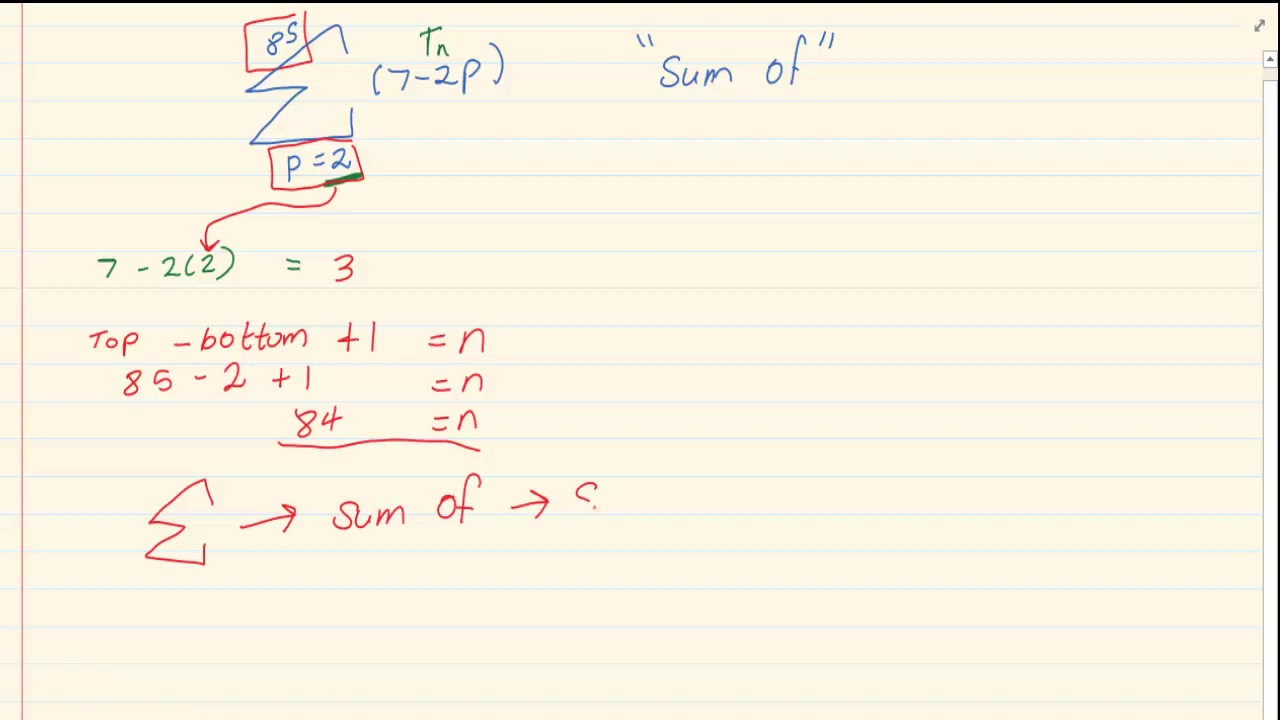 85
Tn
Σ (7-2p) "Sum of"
p = 2
7 - 2(2) = 3
Top - bottom + 1 = n
85 - 2 + 1 = n
84 = n
Σ → sum of → S